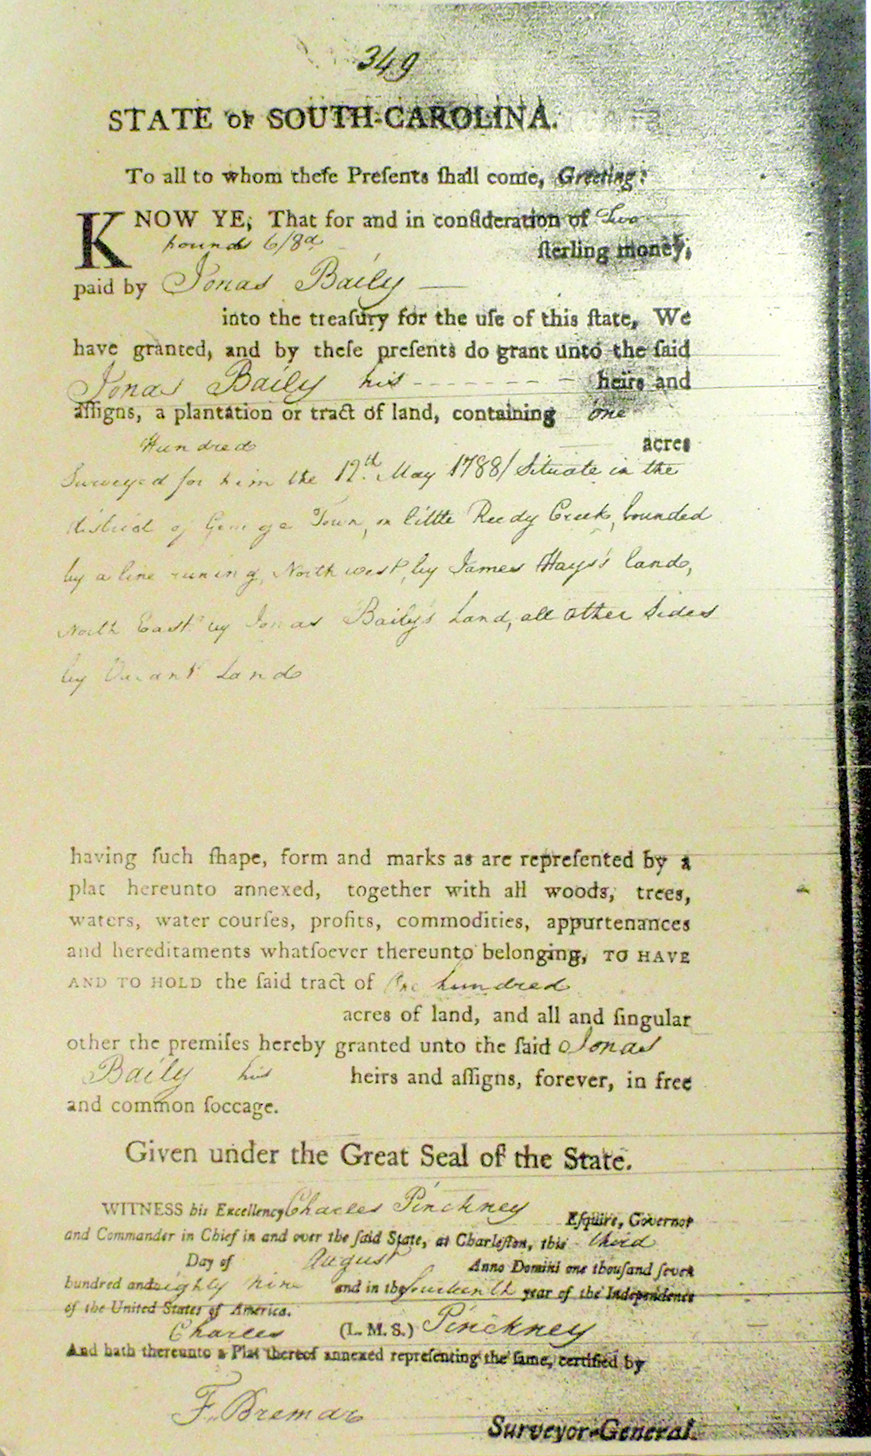 349
STATE OF SOUTH-CAROLINA.
To all to whom theſe Preſents ſhall come, Greeting:
KNOW YE, That for and in conſideration of Two
pounds 6/8d ſterling money,
paid by Jonas Baily
into the treaſury for the uſe of this ſtate, We
have granted, and by theſe preſents do grant unto the ſaid
Jonas Baily his - - - - - - - - heirs and
aſſigns, a plantation or tract of land, containing one
Hundred acres
Surveyed for him the 12th May 1788/ Situate in the
district of George Town, on little Reedy Creek, bounded
by a line runing North west, by James Hays's land,
North East by Jonas Baily's Land, all other Sides
by Vacant Land
having ſuch ſhape, form and marks as are repreſented by a
plat hereunto annexed, together with all woods, trees,
waters, water courſes, profits, commodities, appurtenances
and hereditaments whatſoever thereunto belonging, TO HAVE
AND TO HOLD the ſaid tract of One hundred
acres of land, and all and ſingular
other the premiſes hereby granted unto the ſaid Jonas
Baily his heirs and aſſigns, forever, in free
and common ſoccage.
Given under the Great Seal of the State.
WITNESS his Excellency Charles Pinckney Eſquire, Governor
and Commander in Chief in and over the ſaid State, at Charleſton, this third
Day of August Anno Domini one thouſand ſeven
hundred and eighty nine and in the fourteenth year of the Independence
of the United States of America.
Charles (L. M. S.) Pinckney
And hath thereunto a Plat thereof annexed repreſenting the ſame, certified by
F. Bremar
Surveyor-General.